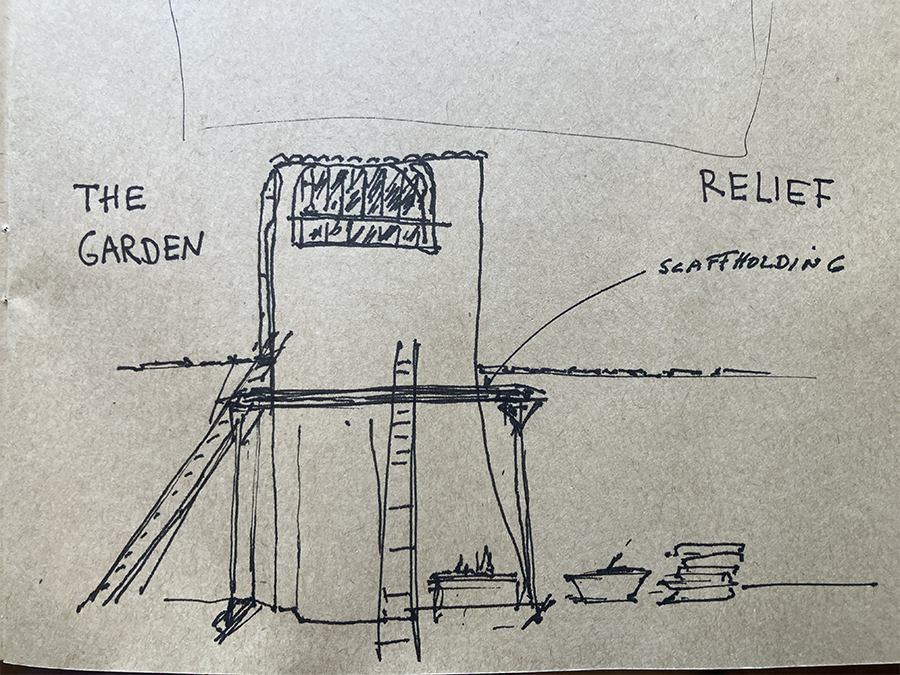 THE
GARDEN
RELIEF
SCAFFHOLDING